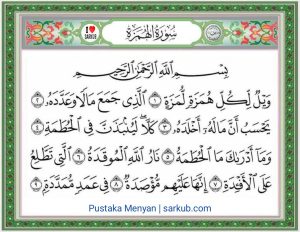 I ❤ SARKUB
سُورَةُ الهُمَزَة
بِسْمِ اللَّهِ الرَّحْمَٰنِ الرَّحِيمِ
وَيْلٌ لِكُلِّ هُمَزَةٍ لُمَزَةٍ ١ الَّذِي جَمَعَ مَالًا وَعَدَّدَهُ ٢
يَحْسَبُ أَنَّ مَالَهُ أَخْلَدَهُ ٣ كَلَّا لَيُنْبَذَنَّ فِي الْحُطَمَةِ ٤
وَمَا أَدْرَاكَ مَا الْحُطَمَةُ ٥ نَارُ اللَّهِ الْمُوقَدَةُ ٦ الَّتِي تَطَّلِعُ
عَلَى الْأَفْئِدَةِ ٧ إِنَّهَا عَلَيْهِمْ مُؤْصَدَةٌ ٨ فِي عَمَدٍ مُمَدَّدَةٍ ٩
Pustaka Menyan | sarkub.com